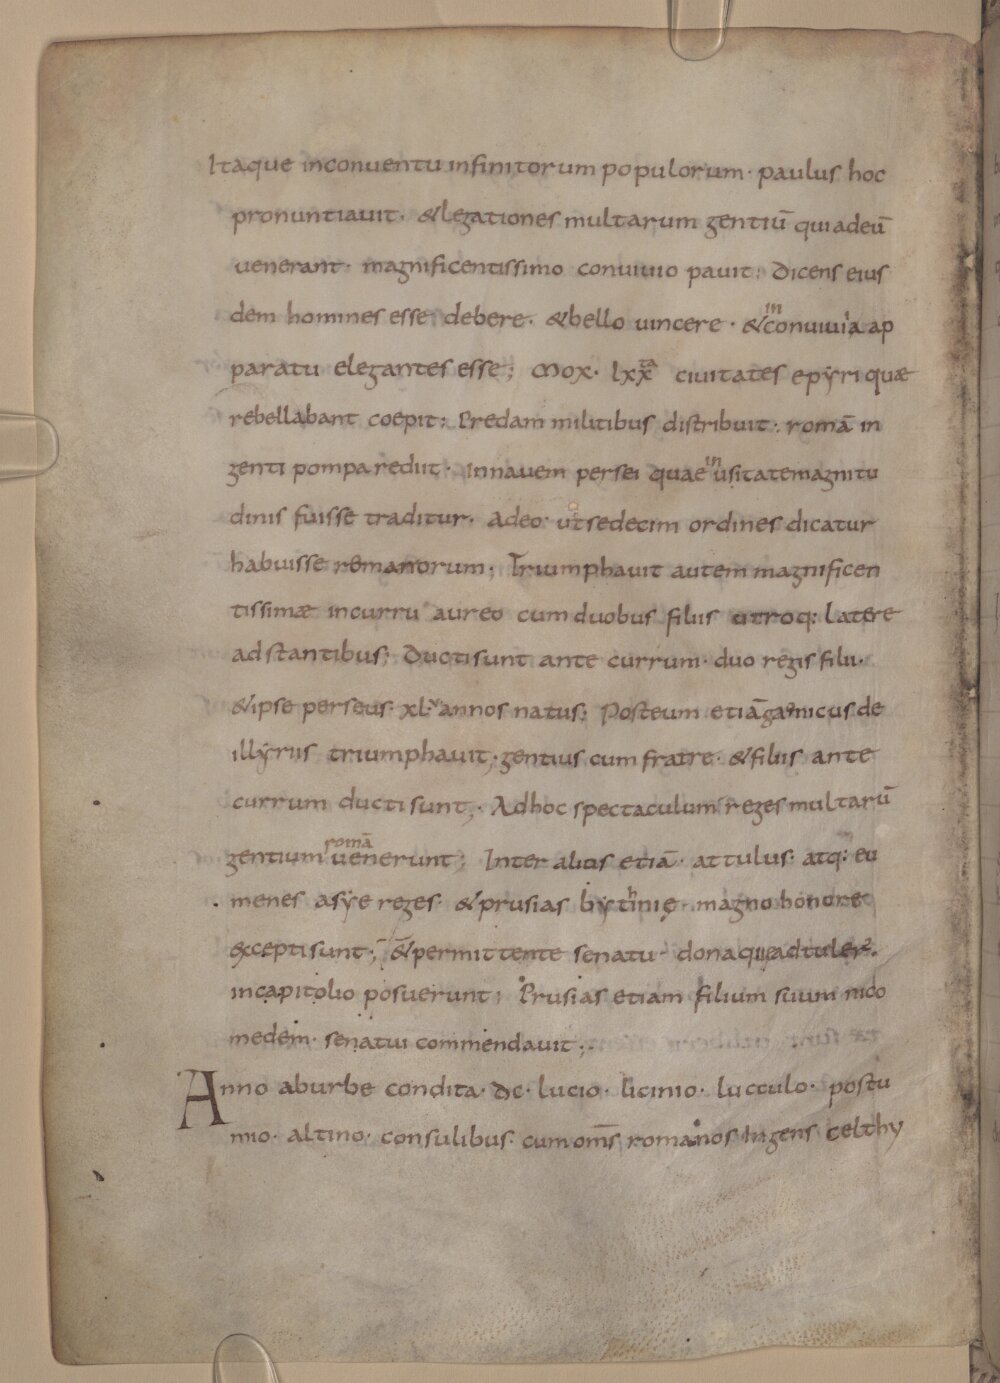 Itaque inconuentu infinitorum populorum· paulus hoc
pronuntiauit· &legationes multarum gentiū qui adeū
uenerant· magnificentissimo conuiuio pauit; Dicens eius
dem homines esse debere· &bello uincere· & in conuiuia ap
paratu elegantes esse; Mox· lxx ta ciuitates epẏri quæ
rebellabant coepit; Predam militibus distribuit; romā in
genti pompa rediit· innauem persei quae inusitatemagnitu
dinis fuisse traditur· Adeo ut sedecim ordines dicatur
habuisse remanorum; Triumphauit autem magnificen
tissimæ incurru aureo cum duobus filiis utroq; latere
adstantibus; Ducti sunt ante currum· duo regis filii·
&ipse perseus· xlv annos natus; Posteum etiā ganicus de
illẏriis triumphauit; gentius cum fratre· &filiis ante
currum ducti sunt; Adhoc spectaculum reges multarū
gentium romā uenerunt; Inter alius etiā· attulus· atq; eu
menes asẏe reges· &prusias bythinię· magno honore
&cepti sunt; &permittente senatu· dona que adtuler̄·
incapitolio posuerunt; Prusias etiam filium suum nico
medem· senatui commendauit;·
Anno aburbe condita· dc· lucio· licinio· lucculo· postu
mio· altino· consulibus· cum om̄s romanos Ingens celthy